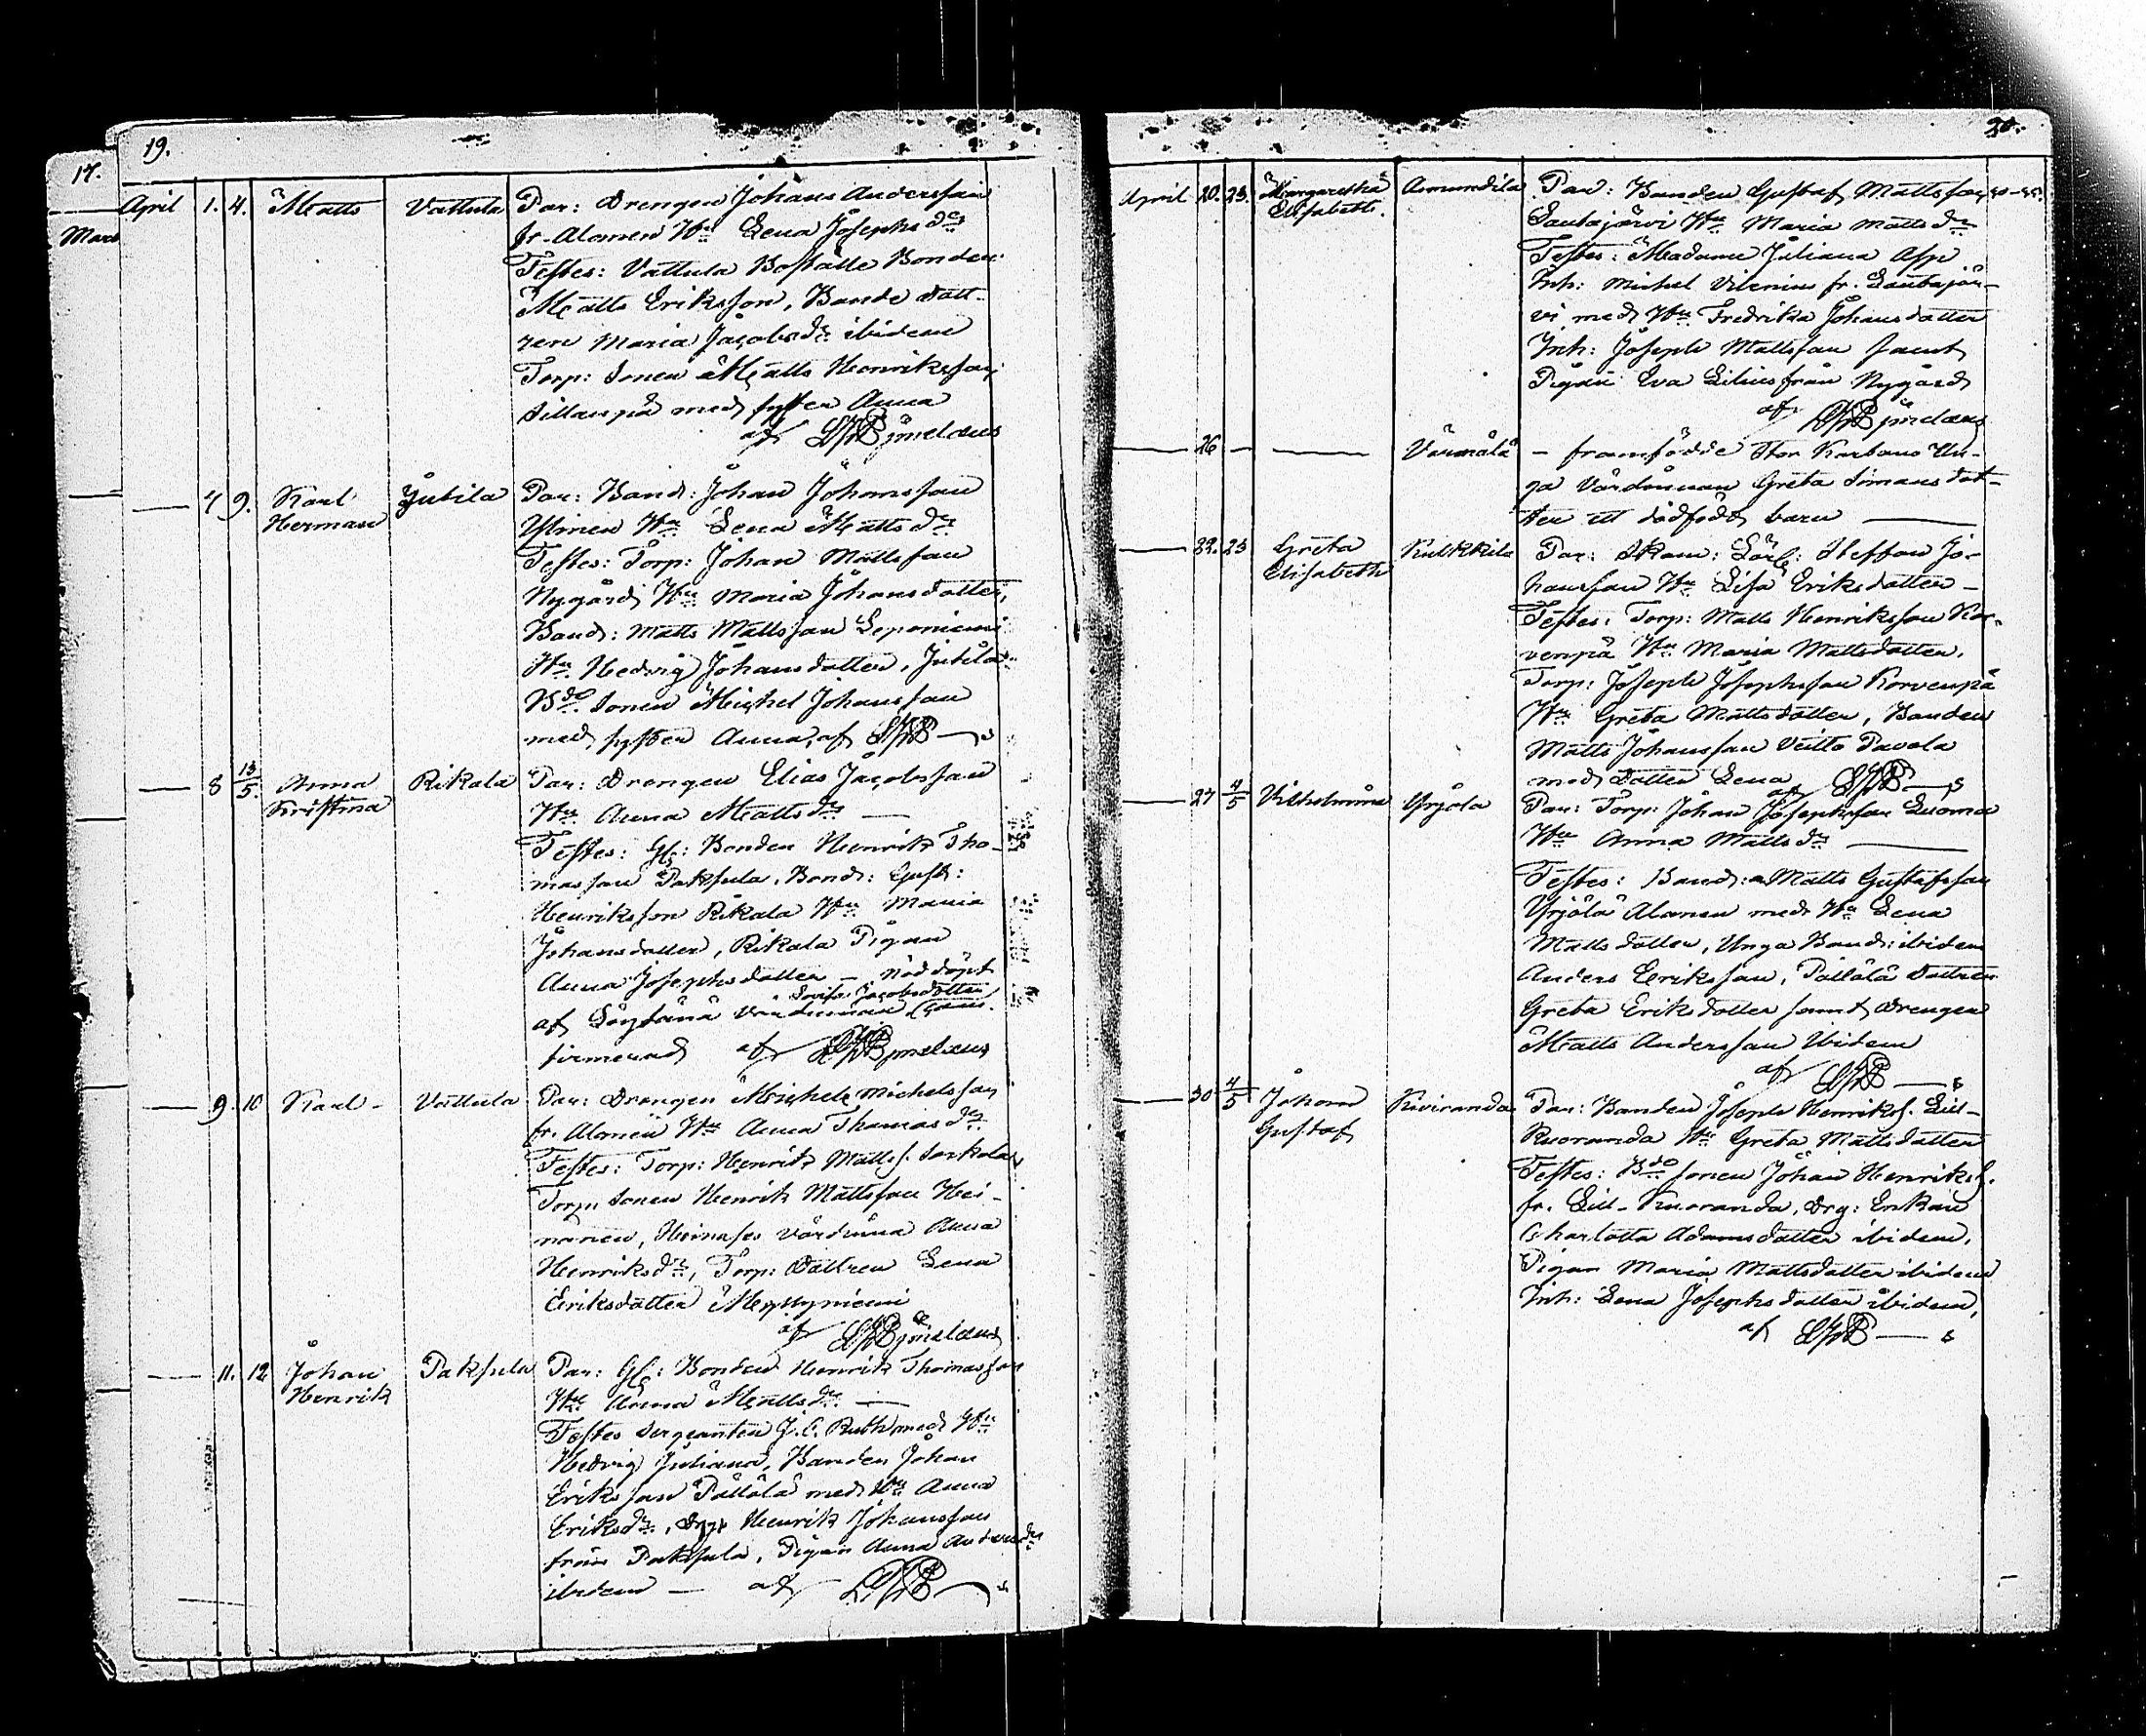 17.
Mars
19.
April 1. 4. Matts Vattula Par: Drengen Johans Andersson
fr. Alonen Hu Lena Josephs dr
Testes: Vattula Boställe Bonden
Matts Eriksson, Bonde dått-
ren Maria Jacobsdr ibidem
Torp: Sonen Matts Henriksson
Sillanpä med syster Anna
af
— 7 9. Karl Jutila Par: Bond: Johan Johansson
Herman Ylinen Hu Lena Matts dr
Testes: Torp: Johan Mattsson
Nygård Hu Maria Johansdotter,
Bond: Matts Mattsson Leponiemi
Hu Hedvig Johansdotter, Jutila
Bdo Sonen Michel Johansson
med syster Anna, af
— 8 13/5. Anna Rikala Par: Drengen Elias Jacobsson
Kristina Hu Anna Matts dr —
Testes: Gl: Bonden Henrik Tho-
masson Paksula, Bond: Gust:
Henriksson Rikala Hu Maria
Johansdotter, Rikala Pigan
Anna Josephsdotter — nöddöpt
Lovisa Jacobsdotter
af
firmerad af
— 9. 10 Karl - Vattula Par: Drengen Michel Michelsson
fr. Alonen Hu Anna Thomas dr
Testes: Torp: Henrik Matts s. Sorkola
Torp: Sonen Henrik Mattsson Hei-
nonen, Anna
Henriksdr, Torp: Dottren Lena
Eriksdotter Myllyniemi
af
— 11. 12 Johan Paksula Par: Gl: Bonden Henrik Thomasson
Henrik Hu Anna Matts dr —
Testes Sergeanten J. C. Ruth med Hu
Hedvig Juliana, Bonden Johan
Eriksson Pällölä med Hu Anna
Eriksdr, Drg: Henrik Johansson
från Paksula, Pigan Anna Andersdr
ibidem — af
20.
April 20. 23. Margaretha Amundila Par: Bonden Gustaf Mattsson 30-35.
Elisabeth. Sautajärvi Hu Maria Matts dr
Testes: Madame Juliana Asp
Inh: Michel Vilenius fr. Sautajär-
vi med Hu Fredrika Johansdotter
Inh: Joseph Mattsson samt
Pigan Eva Lilius från Nygård
af
— 26 — — Värmälä — framfödde Stor Karbans Un-
ga Värdinnan Greta Simonsdot-
ter ett dödfödt barn —
— 22. 23 Greta Kulkkila Par: Skom: Lärl: Steffan Jo-
Elisabeth hansson Hu Lisa Eriksdotter —
Testes: Torp: Matts Henriksson Kor-
venpä Hu Maria Mattsdotter,
Torp: Joseph Josephsson Korvenpä
Hu Greta Mattsdotter, Bonden
Matts Johansson Veitto Pavola
med Dotter Lena af
— 27 4/5 Vilhelmina Yrjola Par: Torp: Johan Josephsson Luoma
Hu Anna Matts dr —
Testes: Bond: Matts Gustafsson
Yrjölä Alanen med Hu Lena
Mattsdotter, Unga Bond: ibidem
Anders Eriksson, Pällölä Dottren
Greta Eriksdotter samt Drengen
Matts Andersson Ibidem
af
— 30 4/5 Johan Kuoranda Par: Bonden Joseph Henriks s. Lill-
Gustaf Kuoranda Hu Greta Mattsdotter
Testes: Bdo Sonen Johan Henriks s.
fr. Lill-Kuoranda, Drg: Enkan
Charlotta Adamsdotter ibidem,
Pigan Maria Mattsdotter ibidem
Inh: Lena Josephsdotter ibidem,
af